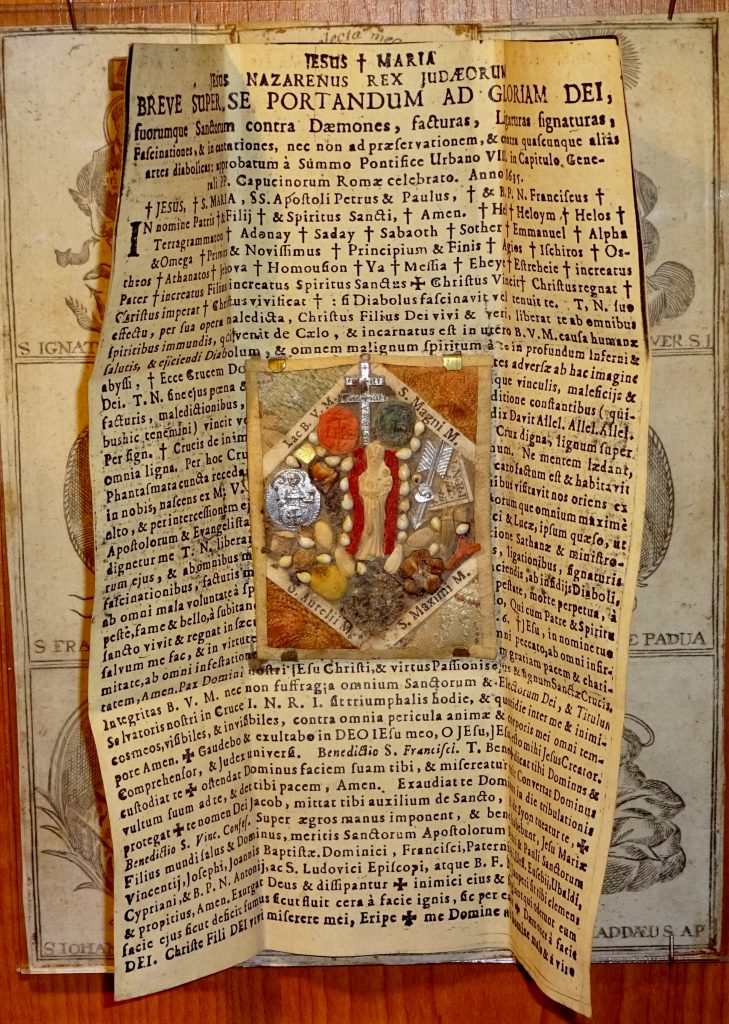 JESUS † MARIA
JESUS NAZARENUS REX JUDÆORUM
BREVE SUPER SE PORTANDUM AD GLORIAM DEI,
suorumque Sanctorum contra Dæmones, facturas, Ligaturas signaturas,
Fascinationes, & incantationes, nec non ad præservationem, & contra quascunque alias
artes diabolicas; approbatum à Summo Pontifice Urbano VIII. in Capitulo Gene-
rali PP. Capucinorum Romæ celebrato. Anno 1635.
† JESUS, † S. MARIA, SS. Apostoli Petrus & Paulus, † & B. P. N. Franciscus †
IN nomine Patris † & Filij † & Spiritus Sancti, † Amen. † Hel † Heloym † Helos †
Tetragrammaton † Adonay † Saday † Sabaoth † Sother † Emmanuel † Alpha
& Omega † Primus & Novissimus † Principium & Finis † Agios † Ischiros † Os-
theos † Athanatos † Jehova † Homousion † Ya † Messia † Eheye † Estreheie † increatus
Pater † increatus Filius increatus Spiritus Sanctus ✠ Christus Vincit † Christus regnat †
Christus imperat † Christus vivificat † : si Diabolus fascinavit vel tenuit te. T. N. suo
effectu, per sua opera maledicta, Christus Filius Dei vivi & veri, liberat te ab omnibus
spiritibus immundis, qui venit de Cælo, & incarnatus est in utero B. V. M. causa humanæ
salutis, & ejiciendi Diabolum, & omnem malignum spiritum à te in profundum Inferni &
abyssi, † Ecce Crucem Do
tes adversæ ab hac imagine
Dei. T. N. sine ejus pœna &
que vinculis, maleficijs &
facturis, maledictionibus,
ditione constantibus (qui-
bus hic tenemini) vincit
dix Davit Allel. Allel. Allel.
Per sign. † Crucis de inim
Crux digna, lignum super
omnia ligna. Per hoc Cruc
num. Ne mentem lædant,
Phantasmata cuncta receda
caro factum est & habitavit
in nobis, nascens ex M. V.
ibus visitavit nos oriens ex
alto, & per intercessionem
orum que omnium maximè
Apostolorum & Evangelista
ci & Lucæ, ipsum quæso, ut
dignetur me T. N. libera
tione Sathanæ & ministro-
rum ejus, & ab omnibus m
, ligationibus, signaturis
fascinationibus, facturis m
ab insidijs Diaboli,
ab omni mala voluntate à
pestate, morte perpetua, à
peste, fame & bello, à subitan
Qui cum Patre & Spiritu
sancto vivit & regnat in sæc
† JEsu, in nomine tuo
salvum me fac, & in virtute
peccato, ab omni infir-
mitate, ab omni infestation
gratiam pacem & chari-
tatem, Amen. Pax Domini nostri JEsu Christi, & virtus Passionis ejus & signum Sanctæ Crucis,
Integritas B. V. M. nec non suffragia omnium Sanctorum & Electorum Dei, & Titulus
Salvatoris nostri in Cruce I. N. R. I. sit triumphalis hodie, & quotidie inter me & inimi-
cos meos, visibiles, & invisibiles, contra omnia pericula animæ & corporis mei omni tem-
pore Amen. ✠ Gaudebo & exultabo in DEO IEsu meo, O JEsu, JEsu, Esto mihi JEsus Creator.
Comprehensor, & Judex universi. Benedictio S. Francisci. T. Benedicat tibi Dominus &
custodiat te ✠ ostendat Dominus faciem suam tibi, & misereatur Convertat Dominus
vultum suum ad te, & det tibi pacem, Amen. Exaudiat te Dominus in die tribulationis
protegat ✠ te nomen Dei Jacob, mittat tibi auxilium de Sancto, Syon tueatur te, ✠
Benedictio S. Vinc. Confess. Super ægros manus imponent, & bene habebunt, Jesu Mariæ
Filius mundi salus & Dominus, meritis Sanctorum Apostolorum & Pauli Sanctorum
Vincentij, Josephi, Joannis Baptistæ. Dominici, Francisci, Paterni Eusebij, Ubaldi,
Cypriani, & B. P. N. Antonij, ac S. Ludovici Episcopi, atque B. F. tibi clemens
& propitius, Amen. Exurgat Deus & dissipantur ✠ inimici ejus & qui oderunt eum
facie ejus sicut deficit fumus sicut fluit cera à facie ignis, sic per Dæmones à facie
DEI. Christe Fili DEI vivi miserere mei, Eripe ✠ me Domine
Lac B. V. M.
S. Magni M.
S. Aurelii M.
S. Maximi M.
S IGNAT
VER. S. I
S FRA
E PADUA
S IOHA
ADDÆUS AP